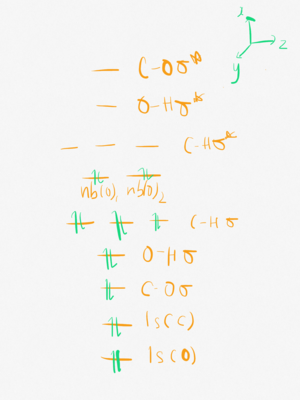 x
z
y
C-Oσ*
O-Hσ*
C-Hσ*
nb(O)₁ nb(O)₂
C-Hσ
O-Hσ
C-Oσ
1s(C)
1s(O)